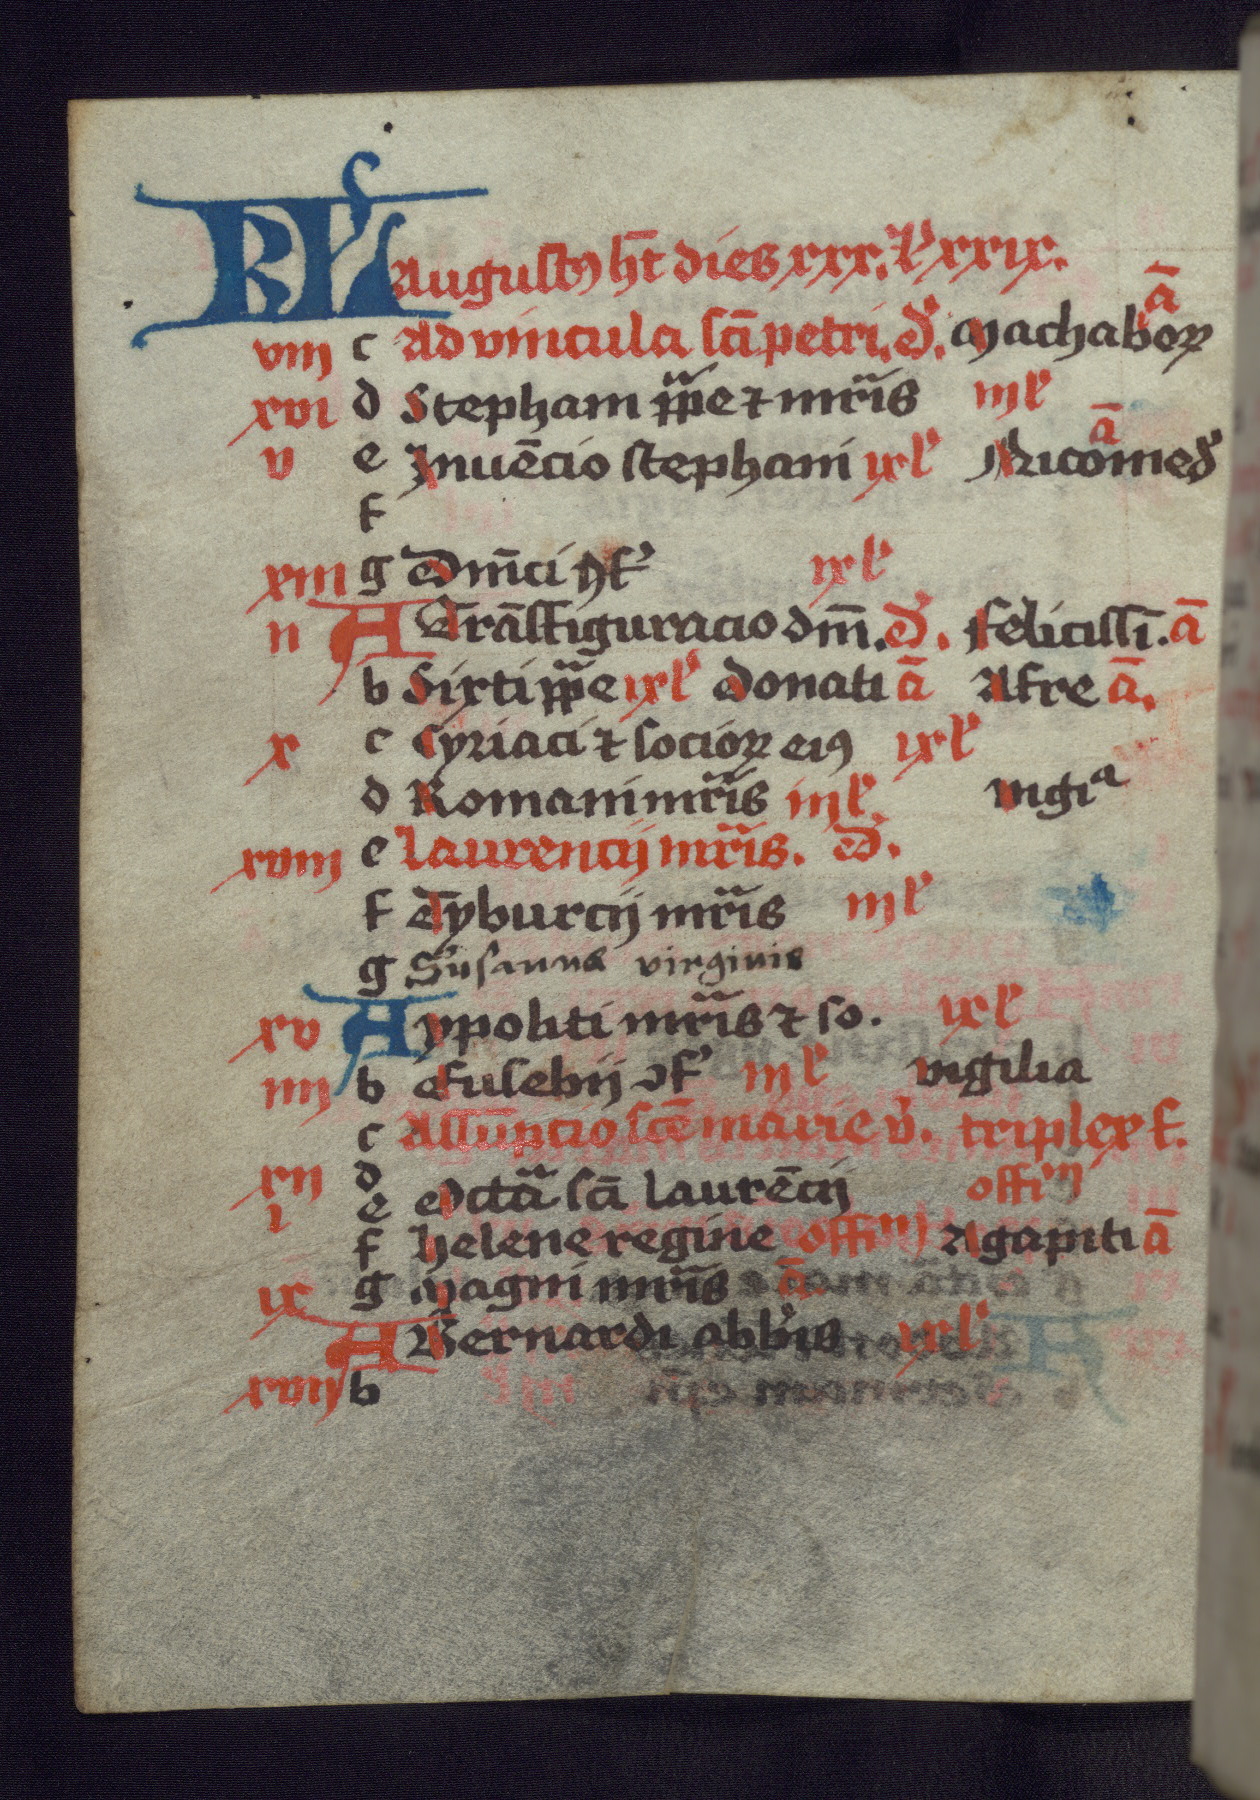 KL Augustꝰ hꝫt dies xxx. lᵃ xxix.
viii c Ad vincula scī petri. d. Machaboꝝ ā
xvi d Stephani ppe ⁊ mr̄is iii l
v e Inuēcio stephani ix l Nicomed ā
f
xiii g Dmīci ꝯf ix l
ii A Trāsfiguracio dm̄. d. felicissī. ā
b Sixti ppe ix l donati ā Afre ā.
x c Cyriaci ⁊ socioꝝ eiꝰ ix l
d Romani mr̄is iii l. vigiᵃ
xviii e Laurencij mr̄is. d.
f Tyburcij mr̄is iii l
g Susanna virginis
xv A ypoliti mr̄is ⁊ so. ix l
iiii b Eusebij ꝯf iii l vigilia
c Assūncio scē marie v. triplex f.
xii d
i e Octā scī laurēcij offm
f helene regine offm Agapiti ā
ix g Magni mr̄is ā.
A Bernardi abb'is ix l
xvii b